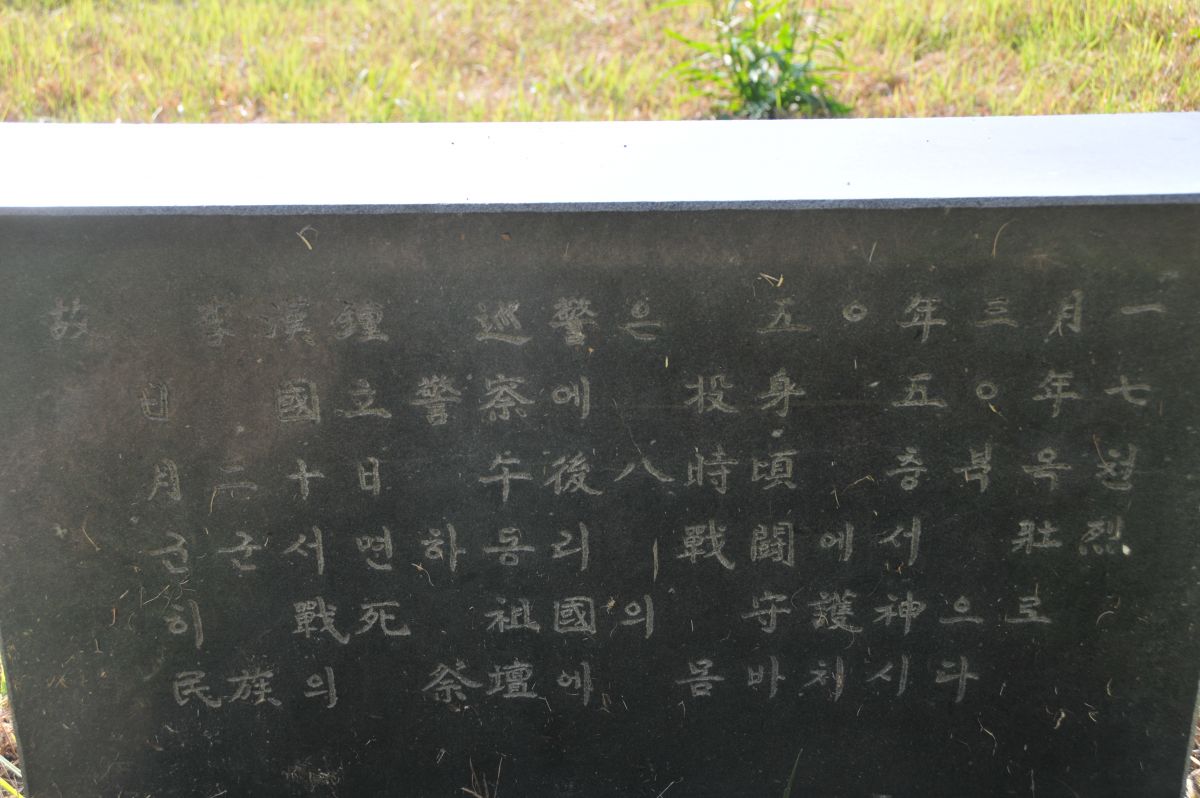 故 李漢鐘 巡警은 五○年三月一
日 國立警察에 投身 五○年七
月二十日 午後八時頃 충북옥천
군군서면하동리 戰闘에서 壯烈
히 戰死 祖國의 守護神으로
民族의 祭壇에 몸바치시다